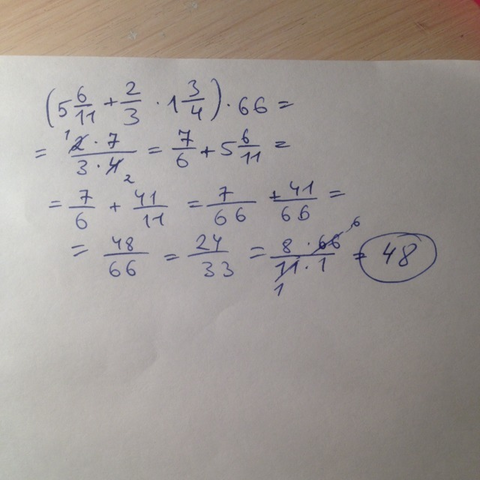 (5 6/11 + 2/3 · 1 3/4) · 66 =
= ¹2 · 7 / 3 · 4₂ = 7/6 + 5 6/11 =
= 7/6 + 41/11 = 7/66 + 41/66 =
= 48/66 = 24/33 = 8 · 66⁶ / 11₁ · 1 = 48